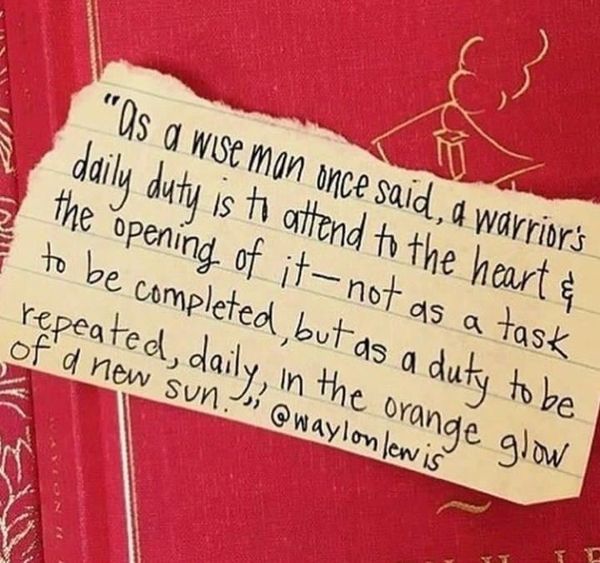 "As a wise man once said, a warrior's
daily duty is to attend to the heart &
the opening of it—not as a task
to be completed, but as a duty to be
repeated, daily, in the orange glow
of a new sun." @waylonlewis